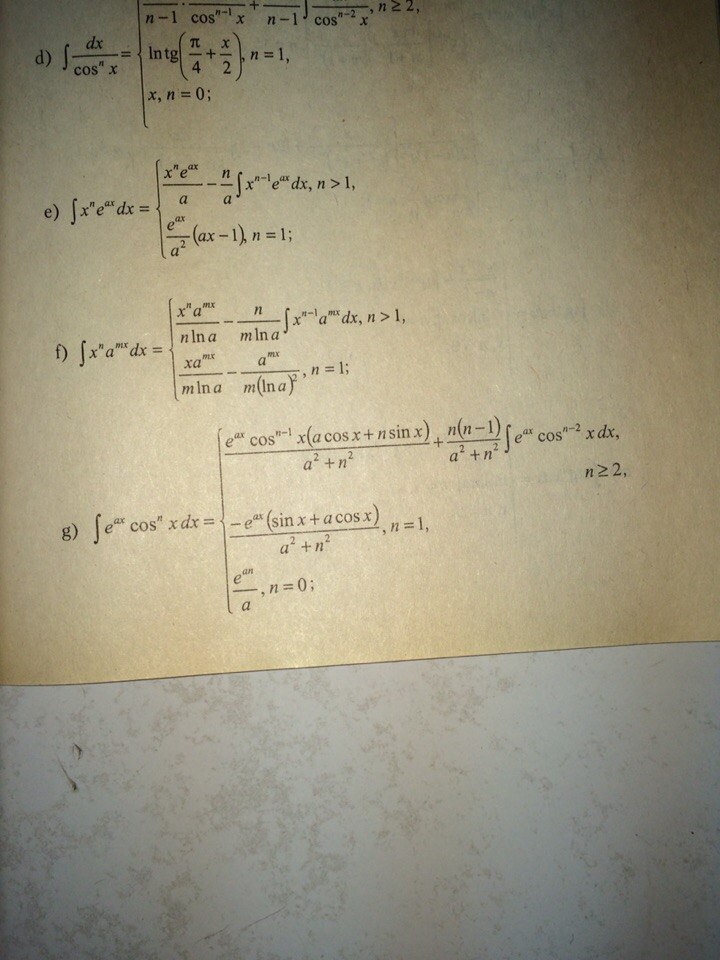 n-1 · cosⁿ⁻¹ x + n-1 ∫ cosⁿ⁻² x , n ≥ 2,
d) ∫ dx/cosⁿ x = ln tg(π/4 + x/2), n = 1,
x, n = 0;
e) ∫ xⁿeᵃˣ dx = xⁿeᵃˣ/a − n/a ∫ xⁿ⁻¹eᵃˣ dx, n > 1,
eᵃˣ/a² (ax − 1), n = 1;
f) ∫ xⁿaᵐˣ dx = xⁿaᵐˣ/(n ln a) − n/(m ln a) ∫ xⁿ⁻¹aᵐˣ dx, n > 1,
xaᵐˣ/(m ln a) − aᵐˣ/(m(ln a)²), n = 1;
eᵃˣ cosⁿ⁻¹ x(a cos x + n sin x)/(a² + n²) + n(n−1)/(a² + n²) ∫ eᵃˣ cosⁿ⁻² x dx,
n ≥ 2,
g) ∫ eᵃˣ cosⁿ x dx = −eᵃˣ(sin x + a cos x)/(a² + n²), n = 1,
eᵃⁿ/a, n = 0;